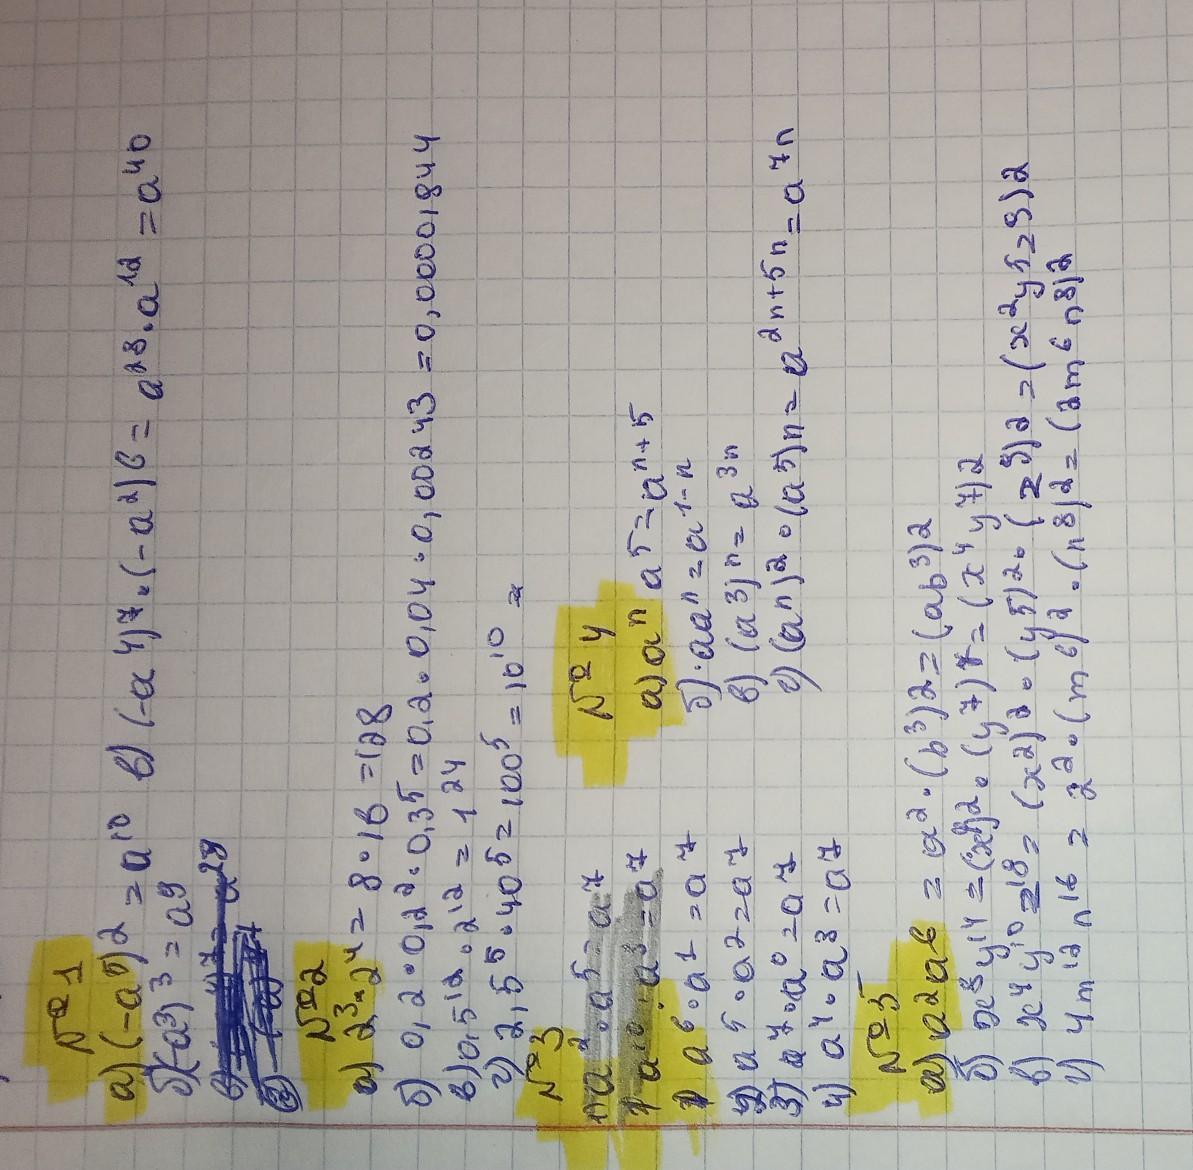 №1
а) (-a⁵)2 = a¹⁰ в) (-a⁴)⁷·(-a²)6 = a²⁸·a¹² = a⁴⁰
б) (-a³)³ = a⁹
№2
а) 2³·2⁴ = 8·16 = 128
б) 0,2·0,2²·0,3⁵ = 0,2·0,04·0,00243 = 0,00001944
в) 0,5¹²·2¹² = 1²⁴
г) 2,5⁵·40⁵ = 100⁵ = 10¹⁰
№3
a²·a⁵ = a⁷
1) a⁶·a¹ = a⁷
2) a⁵·a2 = a⁷
3) a⁷·a⁰ = a⁷
4) a⁴·a³ = a⁷
№4
а) aⁿ a⁵ = aⁿ⁺⁵
б) aaⁿ = a¹⁻ⁿ
в) (a³)ⁿ = a³ⁿ
г) (aⁿ)2·(a⁵)n = a²ⁿ⁺⁵ⁿ = a⁷ⁿ
№5
а) a2ab = a²·(b³)2 = (ab³)2
б) x⁸y¹⁴ = (x⁴)2·(y⁷)2 = (x⁴y⁷)2
в) x⁴y¹⁰z¹⁸ = (x2)2·(y⁵)2·(z⁹)2 = (x²y⁵z9)2
г) 4m¹²n¹⁶ = 2²·(m⁶)2·(n⁸)2 = (2m⁶n⁸)2